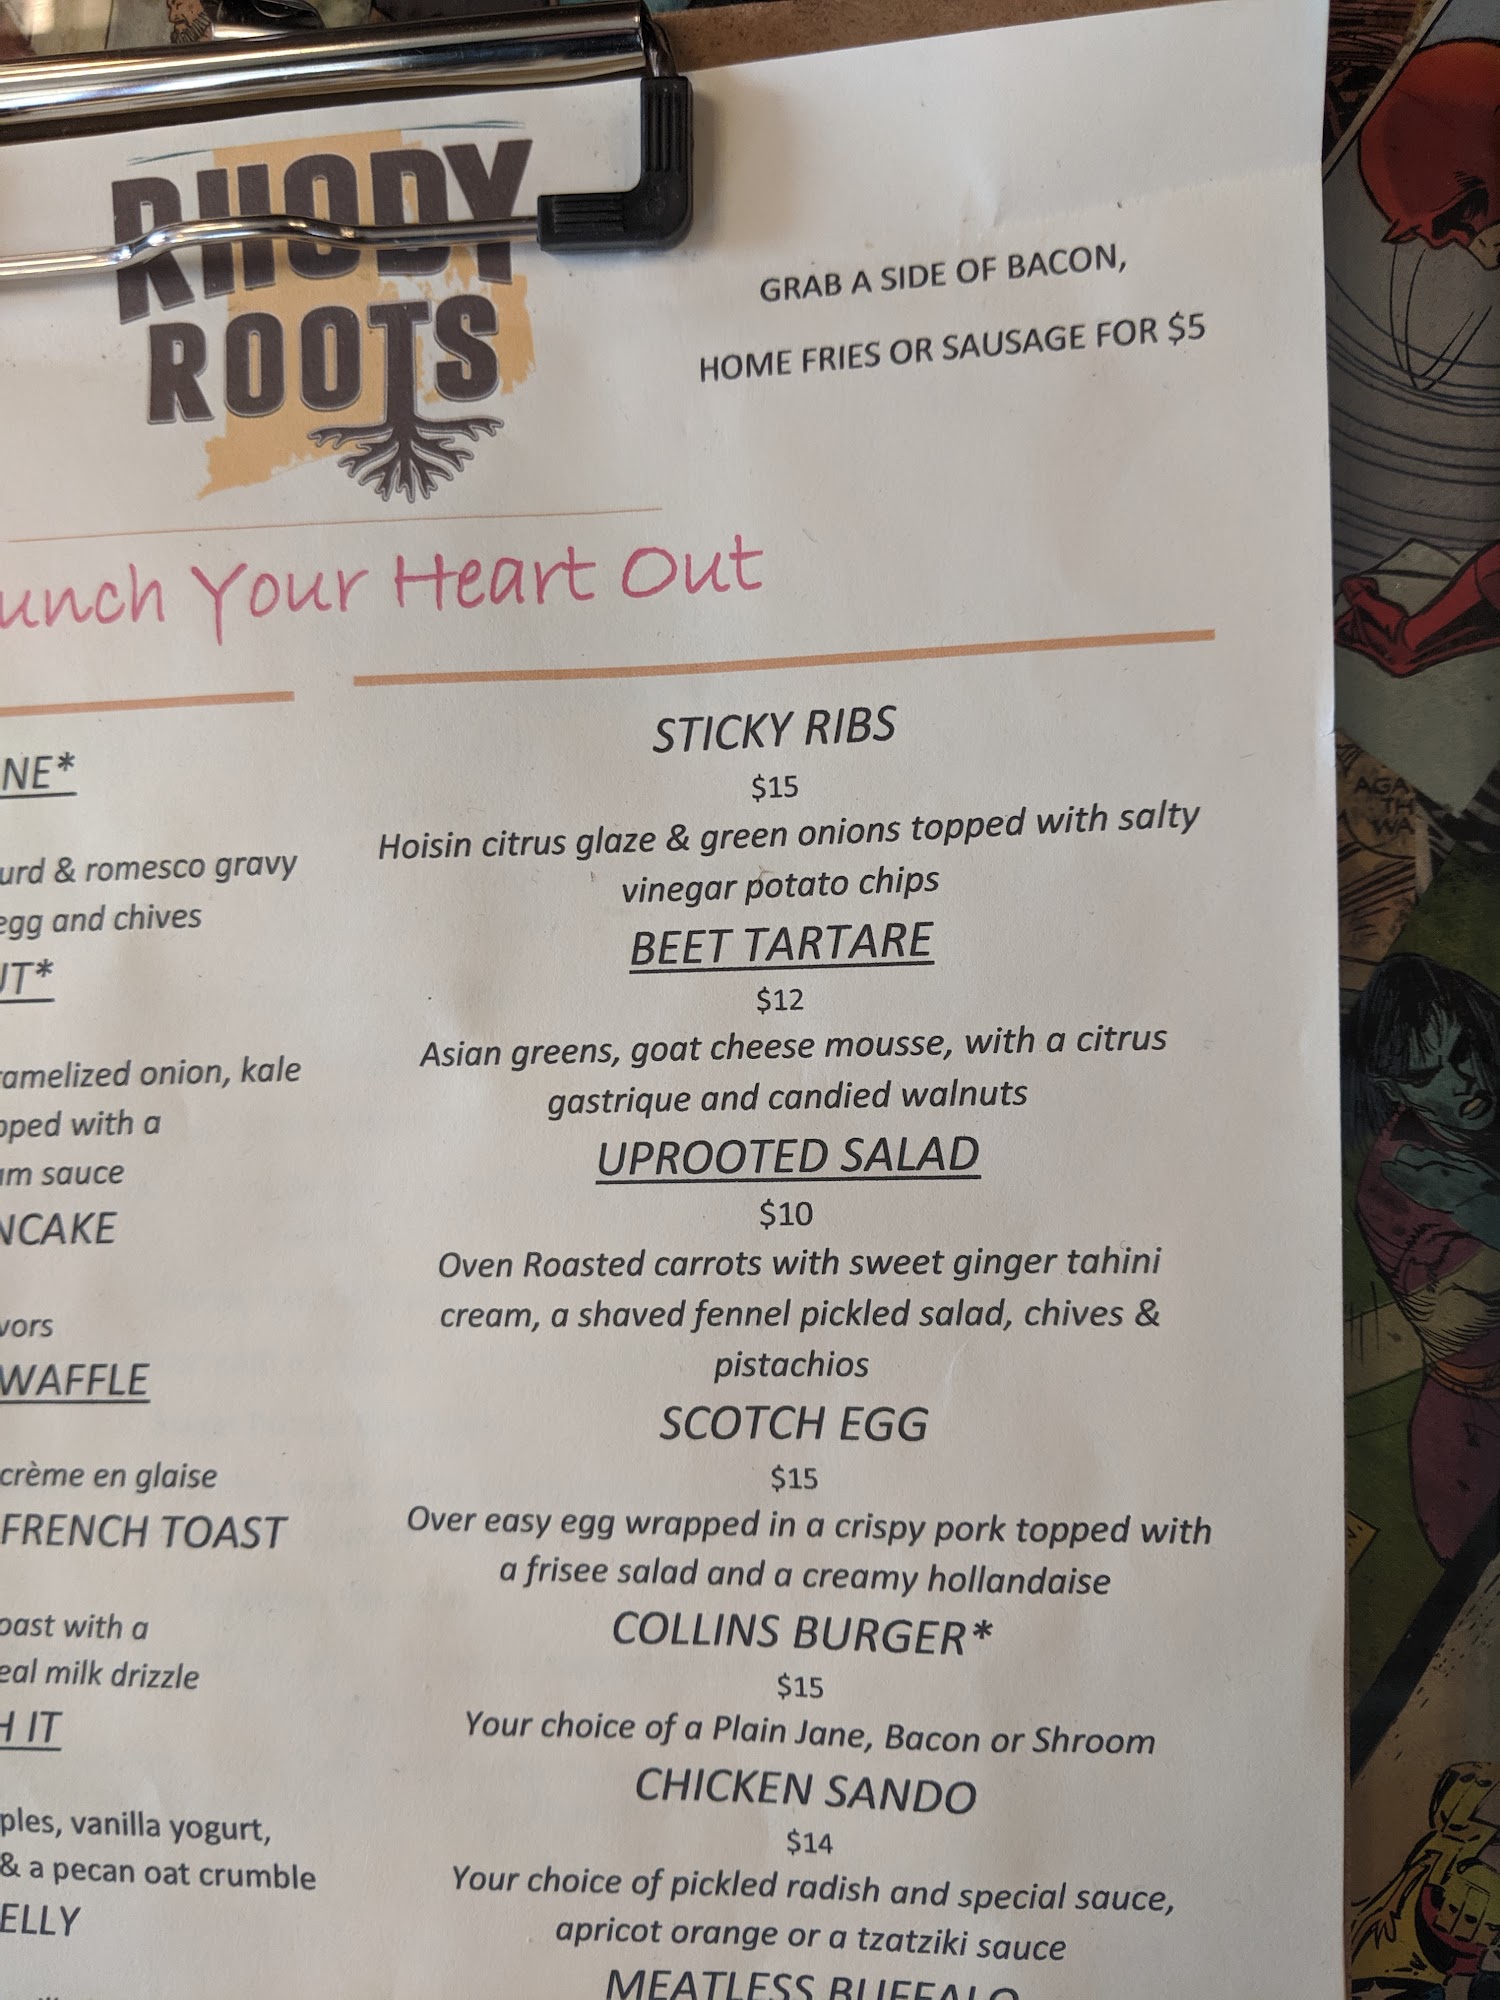 RHODY
ROOTS
GRAB A SIDE OF BACON,
HOME FRIES OR SAUSAGE FOR $5
Your Heart Out
egg and chives
& romesco gravy
onion, kale
with a
sauce
WAFFLE
crème en glaise
FRENCH TOAST
with a
milk drizzle
IT
vanilla yogurt,
& a pecan oat crumble
STICKY RIBS
$15
Hoisin citrus glaze & green onions topped with salty
vinegar potato chips
BEET TARTARE
$12
Asian greens, goat cheese mousse, with a citrus
gastrique and candied walnuts
UPROOTED SALAD
$10
Oven Roasted carrots with sweet ginger tahini
cream, a shaved fennel pickled salad, chives &
pistachios
SCOTCH EGG
$15
Over easy egg wrapped in a crispy pork topped with
a frisee salad and a creamy hollandaise
COLLINS BURGER*
$15
Your choice of a Plain Jane, Bacon or Shroom
CHICKEN SANDO
$14
Your choice of pickled radish and special sauce,
apricot orange or a tzatziki sauce
MEATLESS BUFFALO